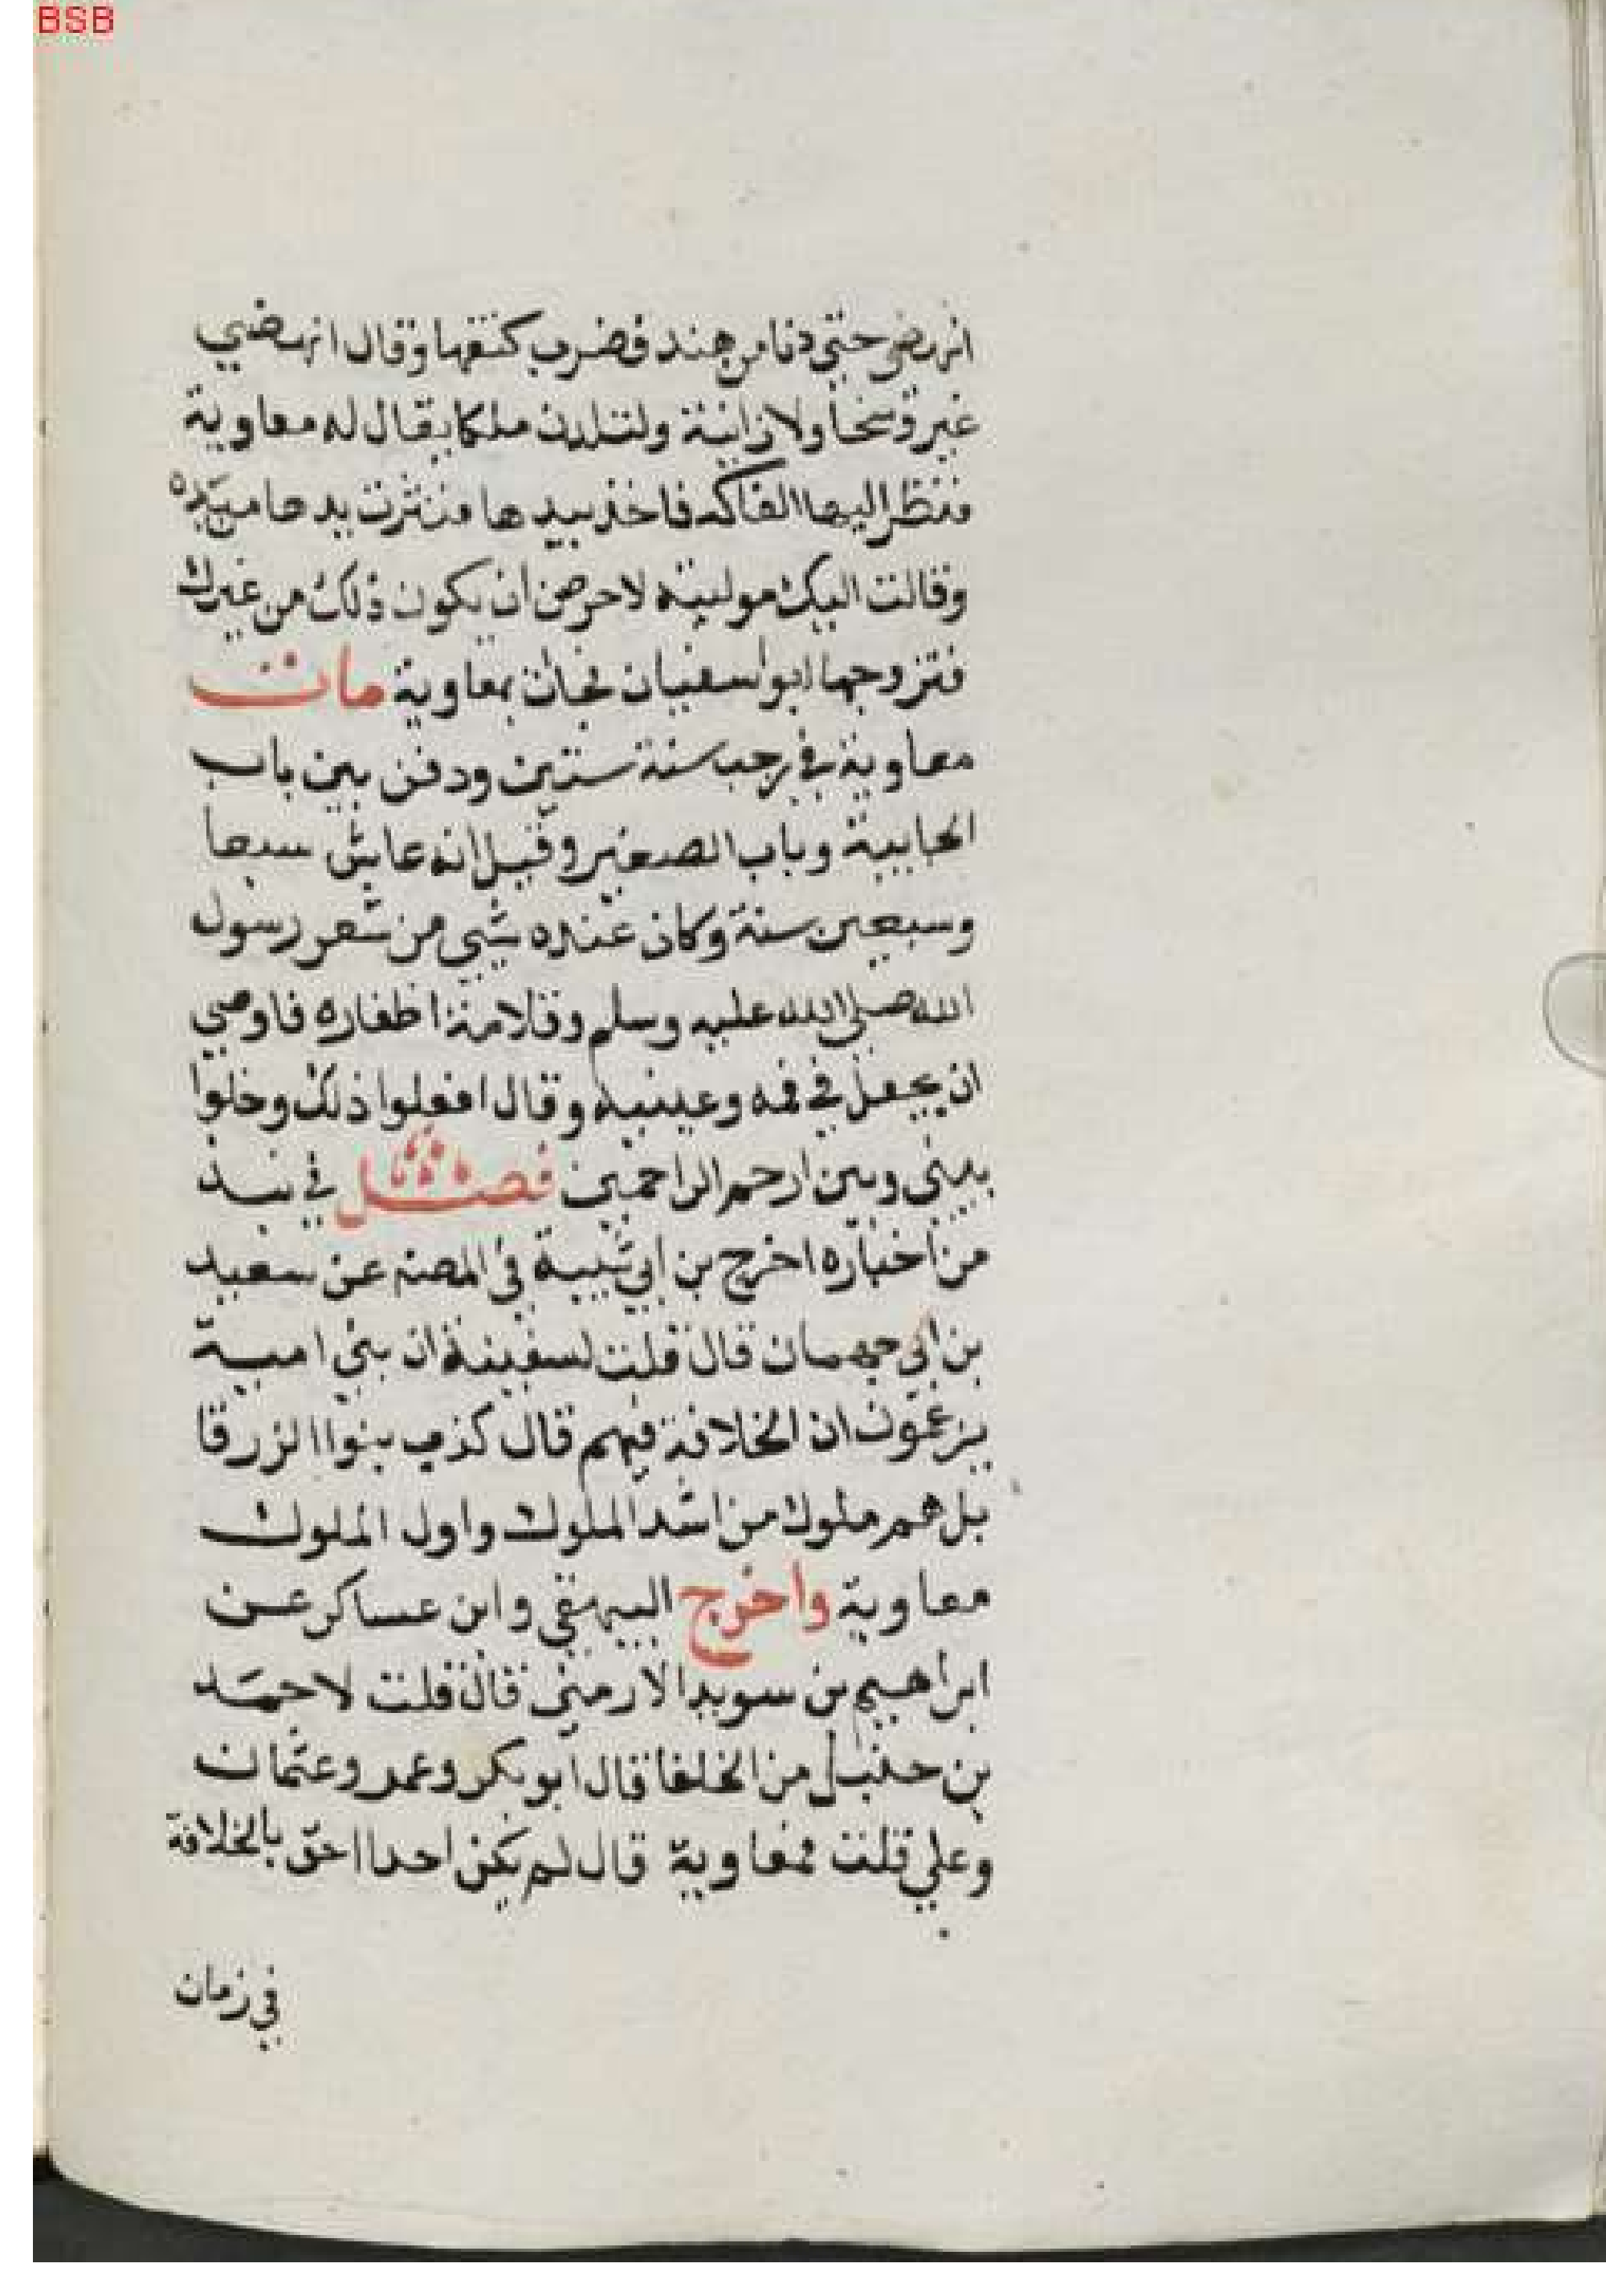 BSB
انهضى حتى دنا من هند فضرب كتفها وقال انهضي
غير وسخا ولا زانية ولتلدن ملكا يقال له معاوية
فنظر اليها الفاكه فاخذ بيدها فنثرت يدها من يده
وقالت اليك موليته لاحرص ان يكون ذلك من غيرك
فتزوجها ابوا سفيان فجات بمعاوية مات
معاوية في رجب سنة ستين ودفن بين باب
الجابية وباب الصغير وقيل انه عاش سبعا
وسبعين سنة وكان عنده شي من شعر رسول
الله صلى الله عليه وسلم وقلامة اظفاره فاوصي
ان يجعل في فمه وعينيه وقال افعلوا ذلك وخلوا
بيني وبين ارحم الراحمين فصل في نبذ
من اخباره اخرج بن ابي شيبة في المصنـ عن سعيد
بن ابي جهمان قال قلت لسفينة ان بني امية
يزعمون ان الخلافة فيهم قال كذب بنوا الزرقا
بل هم ملوك من اشد الملوك واول الملوك
معاوية واخرج البيهقي وابن عساكر عن
ابراهيم بن سويد الارمني قال قلت لاحمد
بن حنبل من الخلفا قال ابو بكر وعمر وعثمان
وعلي قلت فمعاوية قال لم يكن احدا احق بالخلافة
في زمان